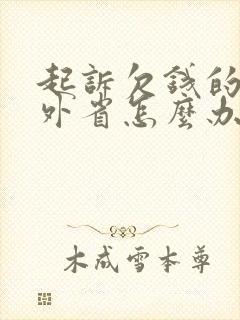 起訴欠錢的
外省怎麼办
木成雪本尊